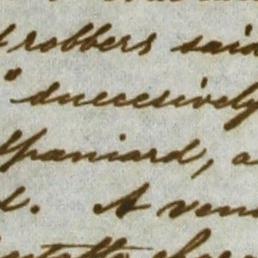 robbers said
"succesively
Spaniard, a
d. A ven